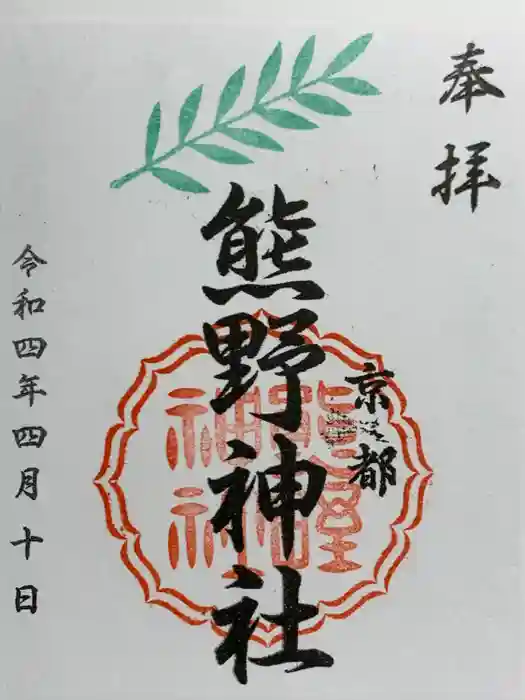 奉拝
京都
熊野神社
熊野
神社
令和四年四月十日